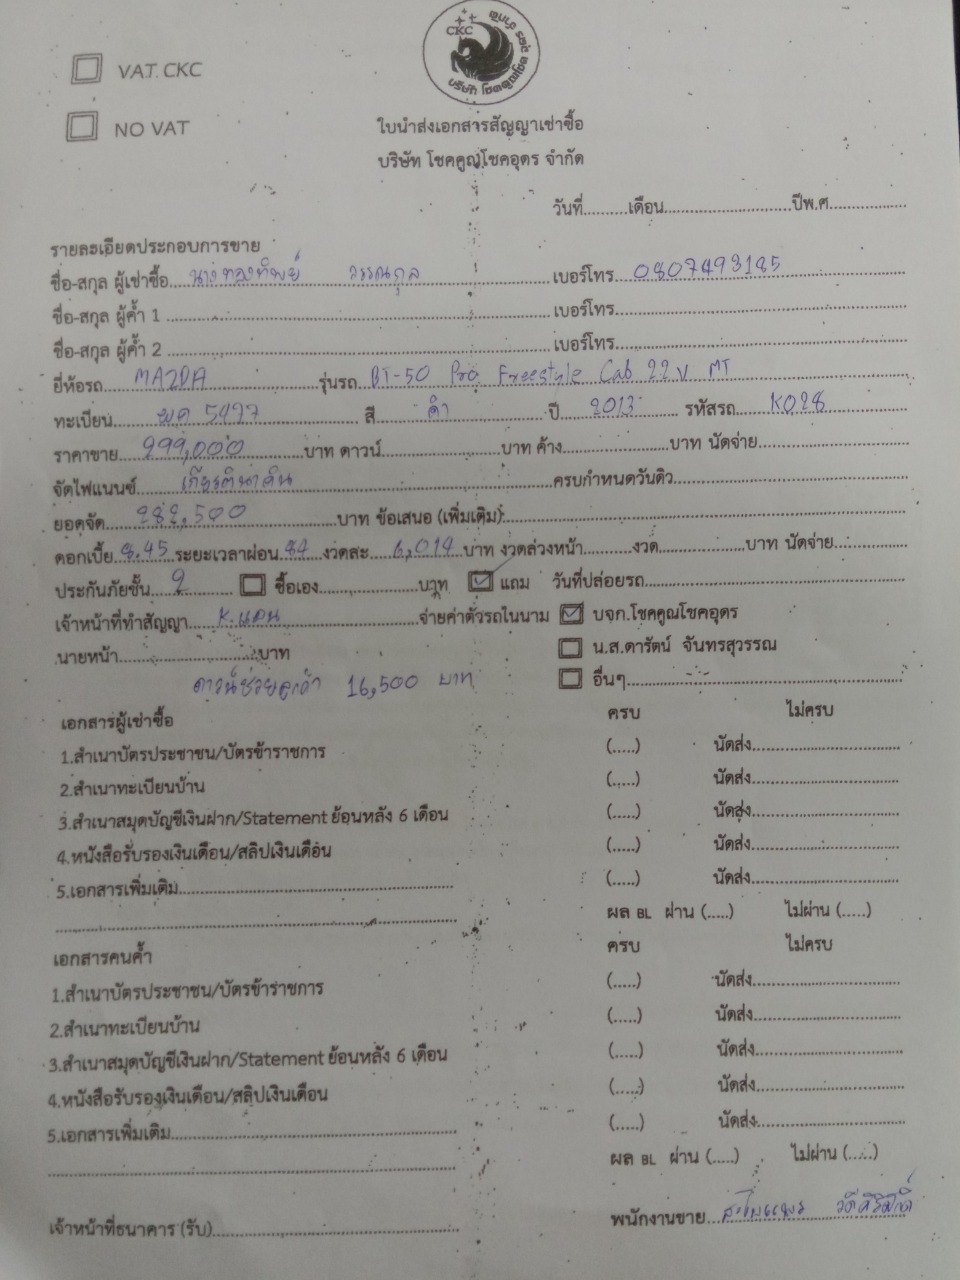 CKC
บริษัท โชคคูณโชค
VAT CKC
NO VAT
ใบนำส่งเอกสารสัญญาเช่าซื้อ
บริษัท โชคคูณโชคอุดร จำกัด
วันที่..........เดือน.............................ปีพ.ศ.................
รายละเอียดประกอบการขาย
ชื่อ-สกุล ผู้เช่าซื้อ นางทองทิพย์ วรรณกุล เบอร์โทร 0807493185
ชื่อ-สกุล ผู้ค้ำ 1 ............................ เบอร์โทร............................
ชื่อ-สกุล ผู้ค้ำ 2 ............................ เบอร์โทร............................
ยี่ห้อรถ MAZDA รุ่นรถ BT-50 Pro Freestyle Cab 2.2 V MT
ทะเบียน 5427 สี ดำ ปี 2013 รหัสรถ K028
ราคาขาย 299,000 บาท ดาวน์....................บาท ค้าง....................บาท นัดจ่าย....................
จัดไฟแนนซ์ เกียรตินาคิน ครบกำหนดวันดิว....................
ยอดจัด 282,500 บาท ข้อเสนอ (เพิ่มเติม):....................
ดอกเบี้ย 8.45 ระยะเวลาผ่อน 84 งวดละ 6,014 บาท งวดล่วงหน้า..........งวด..........บาท นัดจ่าย..........
ประกันภัยชั้น 2 ซื้อเอง....................บาท แถม วันที่ปล่อยรถ....................
เจ้าหน้าที่ทำสัญญา K.แอน จ่ายค่าตัวรถในนาม บจก.โชคคูณโชคอุดร
นายหน้า....................บาท น.ส.ดารัตน์ จันทรสุวรรณ
ดาวน์ช่วยลูกค้า 16,500 บาท อื่นๆ....................
เอกสารผู้เช่าซื้อ ครบ ไม่ครบ
1.สำเนาบัตรประชาชน/บัตรข้าราชการ (.....) นัดส่ง....................
2.สำเนาทะเบียนบ้าน (.....) นัดส่ง....................
3.สำเนาสมุดบัญชีเงินฝาก/Statement ย้อนหลัง 6 เดือน (.....) นัดส่ง....................
4.หนังสือรับรองเงินเดือน/สลิปเงินเดือน (.....) นัดส่ง....................
5.เอกสารเพิ่มเติม.................... (.....) นัดส่ง....................
ผล BL ผ่าน (.....) ไม่ผ่าน (.....)
เอกสารคนค้ำ ครบ ไม่ครบ
1.สำเนาบัตรประชาชน/บัตรข้าราชการ (.....) นัดส่ง....................
2.สำเนาทะเบียนบ้าน (.....) นัดส่ง....................
3.สำเนาสมุดบัญชีเงินฝาก/Statement ย้อนหลัง 6 เดือน (.....) นัดส่ง....................
4.หนังสือรับรองเงินเดือน/สลิปเงินเดือน (.....) นัดส่ง....................
5.เอกสารเพิ่มเติม.................... (.....) นัดส่ง....................
ผล BL ผ่าน (.....) ไม่ผ่าน (.....)
เจ้าหน้าที่ธนาคาร (รับ).................... พนักงานขาย